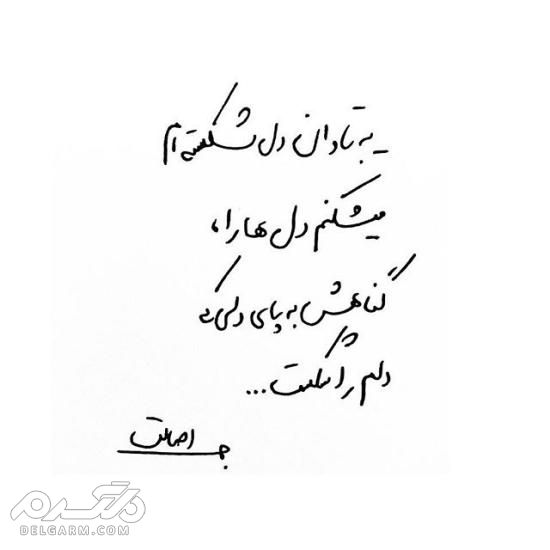 به تاوان دل شکسته ام
میشکنم دل ها را،
گناهش به پای دلی که
دلم را شکست...
اصالت
دلگرم
DELGARM.COM